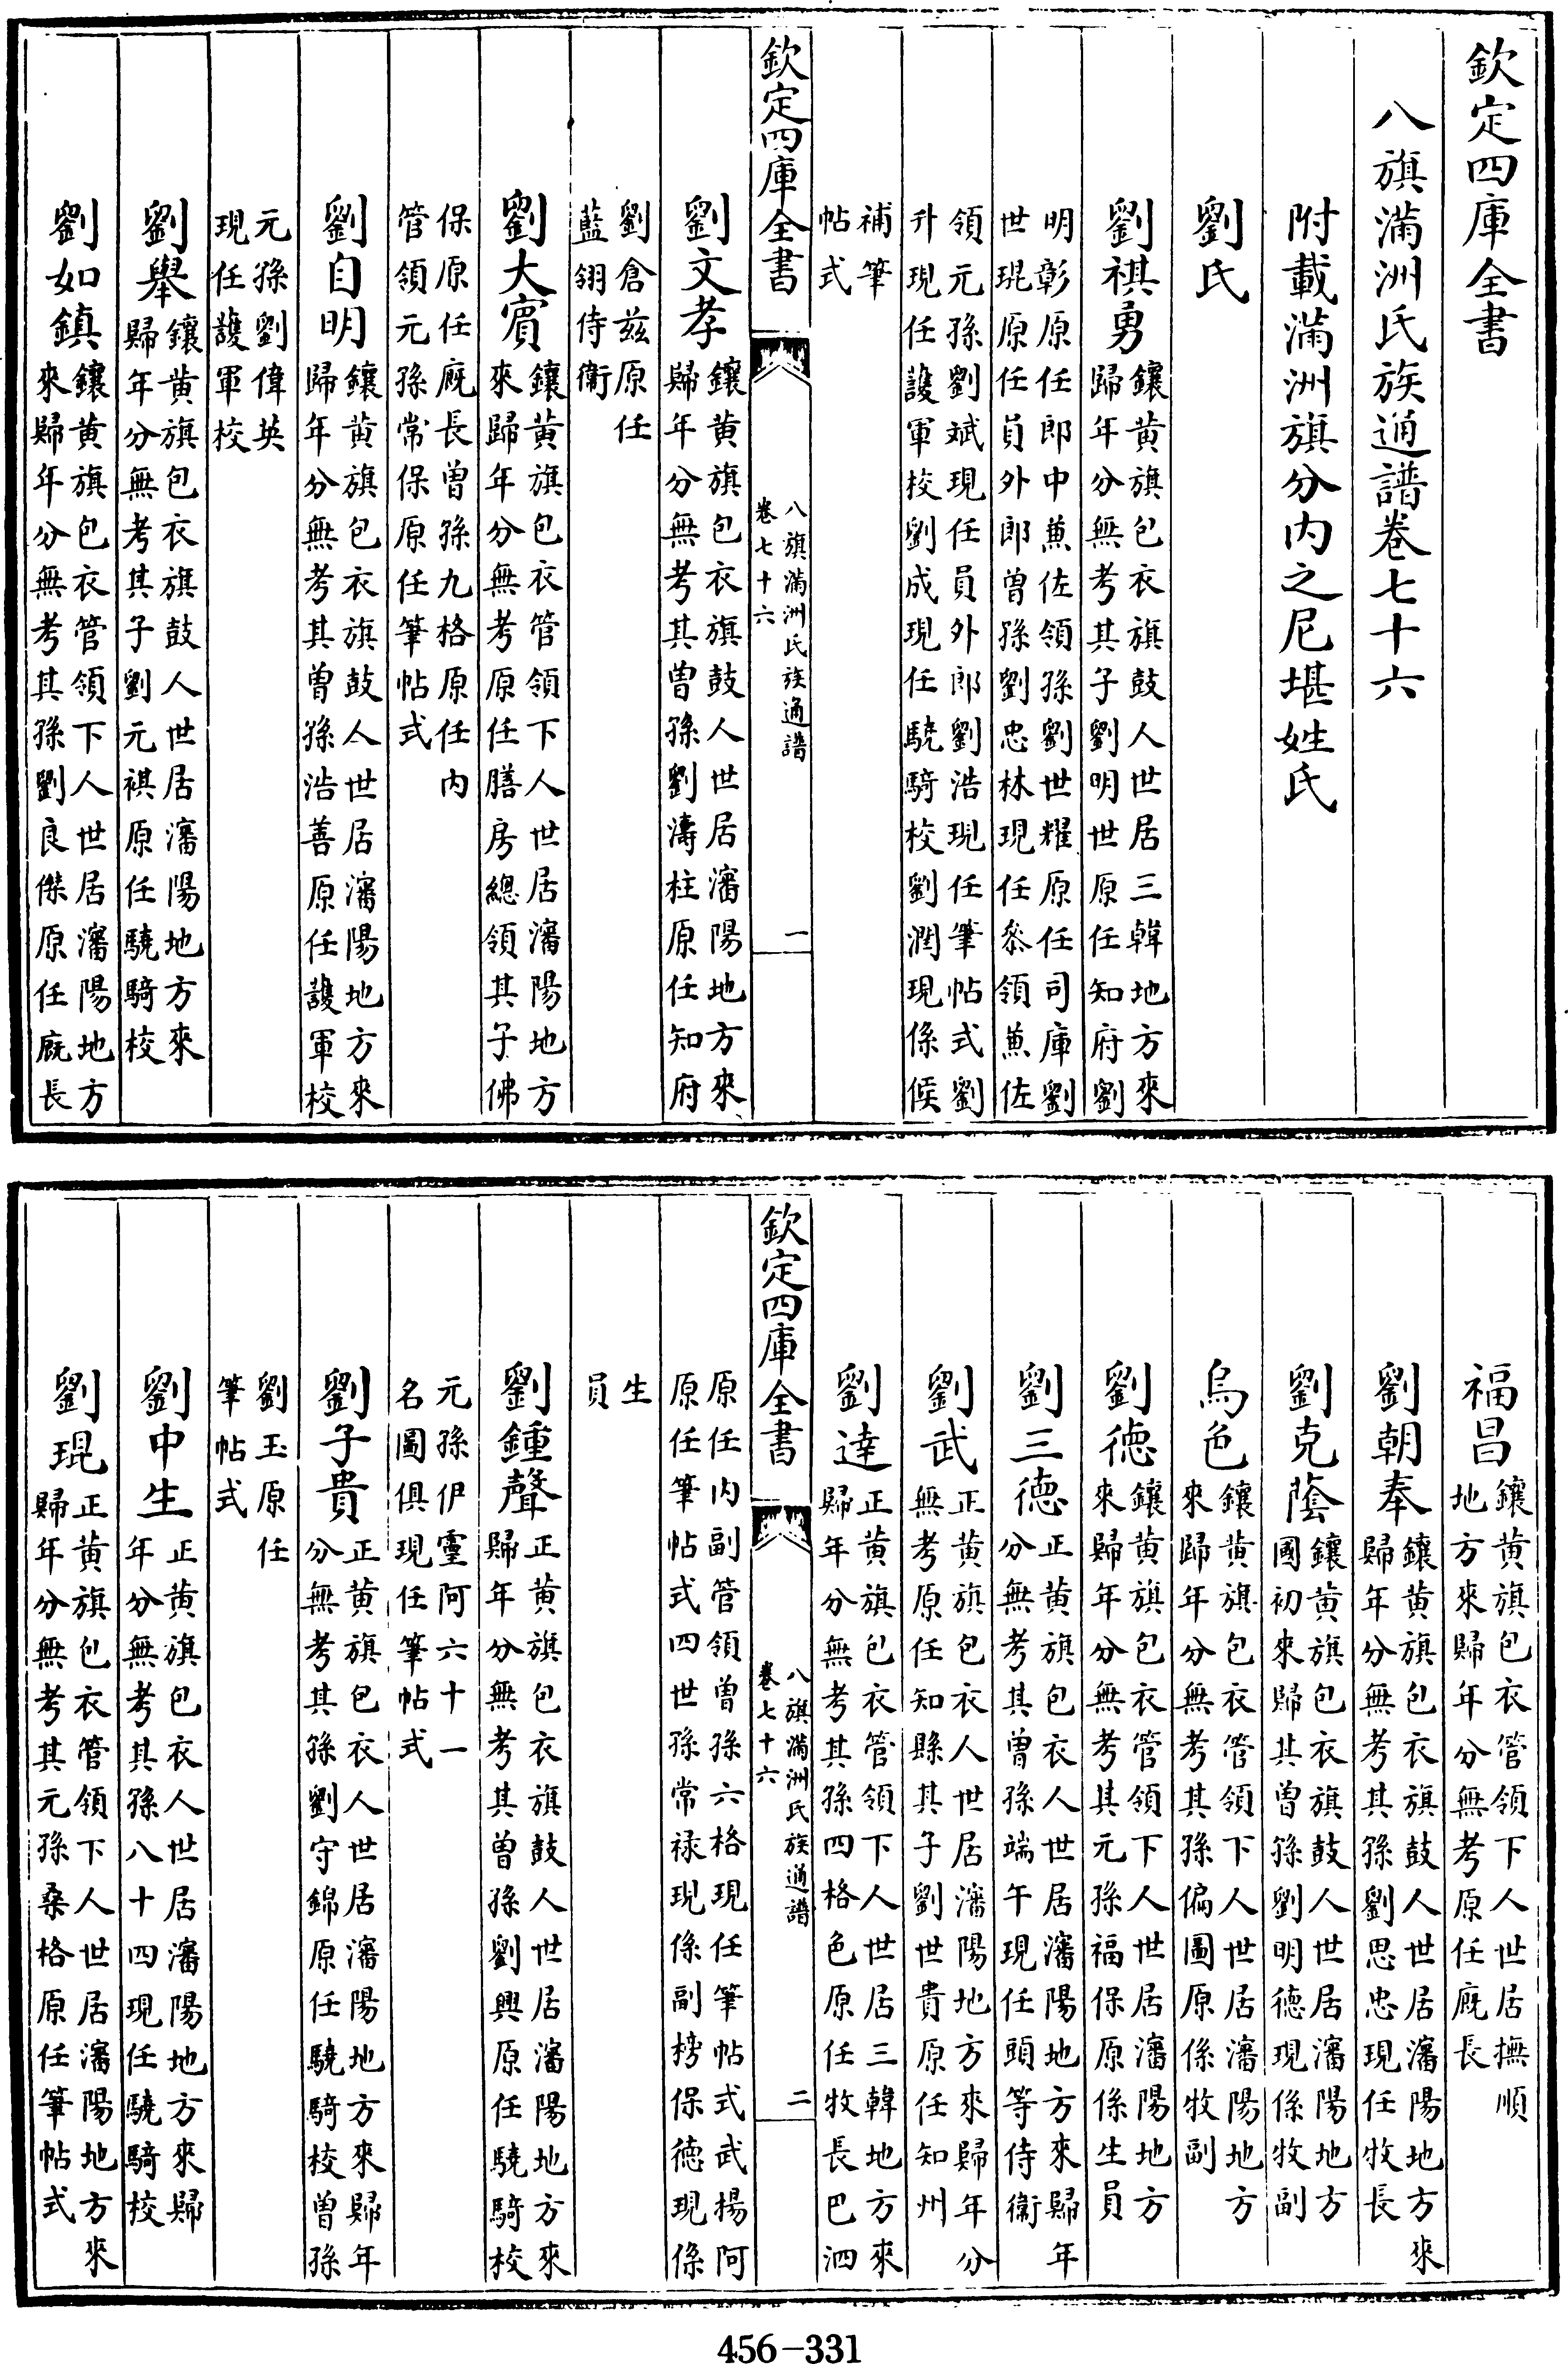 欽定四庫全書
八旗滿洲氏族通譜卷七十六
附載滿洲旗分内之尼堪姓氏
劉氏
劉祺勇鑲黄旗包衣旗鼓人世居三韓地方來
歸年分無考其子劉明世原任知府劉
明彰原任郎中兼佐領孫劉世耀原任司庫劉
世琨原任員外郎曾孫劉忠林現任叅領兼佐
領元孫劉斌現任員外郎劉浩現任筆帖式劉
升現任護軍校劉成現任驍騎校劉潤現係候
補筆
帖式
欽定四庫全書
八旗滿洲氏族通譜
卷七十六
一
劉文孝鑲黄旗包衣旗鼓人世居瀋陽地方來
歸年分無考其曾孫劉濤柱原任知府
劉倉兹原任
藍翎侍衛
劉大賔鑲黄旗包衣管領下人世居瀋陽地方
來歸年分無考原任膳房總領其子佛
保原任廐長曾孫九格原任内
管領元孫常保原任筆帖式
劉自明鑲黄旗包衣旗鼓人世居瀋陽地方來
歸年分無考其曾孫浩善原任護軍校
元孫劉偉英
現任護軍校
劉舉鑲黄旗包衣旗鼓人世居瀋陽地方來
歸年分無考其子劉元祺原任驍騎校
劉如鎮鑲黄旗包衣管領下人世居瀋陽地方
來歸年分無考其孫劉良傑原任廐長
福昌鑲黄旗包衣管領下人世居撫順
地方來歸年分無考原任廐長
劉朝奉鑲黄旗包衣旗鼓人世居瀋陽地方來
歸年分無考其孫劉思忠現任牧長
劉克蔭鑲黄旗包衣旗鼓人世居瀋陽地方
國初來歸其曾孫劉明德現係牧副
烏色鑲黄旗包衣管領下人世居瀋陽地方
來歸年分無考其孫偏圖原係牧副
劉德鑲黄旗包衣管領下人世居瀋陽地方
來歸年分無考其元孫福保原係生員
劉三德正黄旗包衣人世居瀋陽地方來歸年
分無考其曾孫端午現任頭等侍衛
劉武正黄旗包衣人世居瀋陽地方來歸年分
無考原任知縣其子劉世貴原任知州
劉達正黄旗包衣管領下人世居三韓地方來
歸年分無考其孫四格色原任牧長巴泗
欽定四庫全書
八旗滿洲氏族通譜
卷七十六
二
原任内副管領曾孫六格現任筆帖式武楊阿
原任筆帖式四世孫常禄現係副榜保德現係
生
員
劉鍾聲正黄旗包衣旗鼓人世居瀋陽地方來
歸年分無考其曾孫劉興原任驍騎校
元孫伊靈阿六十一
名圖俱現任筆帖式
劉子貴正黄旗包衣人世居瀋陽地方來歸年
分無考其孫劉守錦原任驍騎校曾孫
劉玉原任
筆帖式
劉中生正黄旗包衣人世居瀋陽地方來歸
年分無考其孫八十四現任驍騎校
劉琨正黄旗包衣管領下人世居瀋陽地方來
歸年分無考其元孫桑格原任筆帖式
456-331